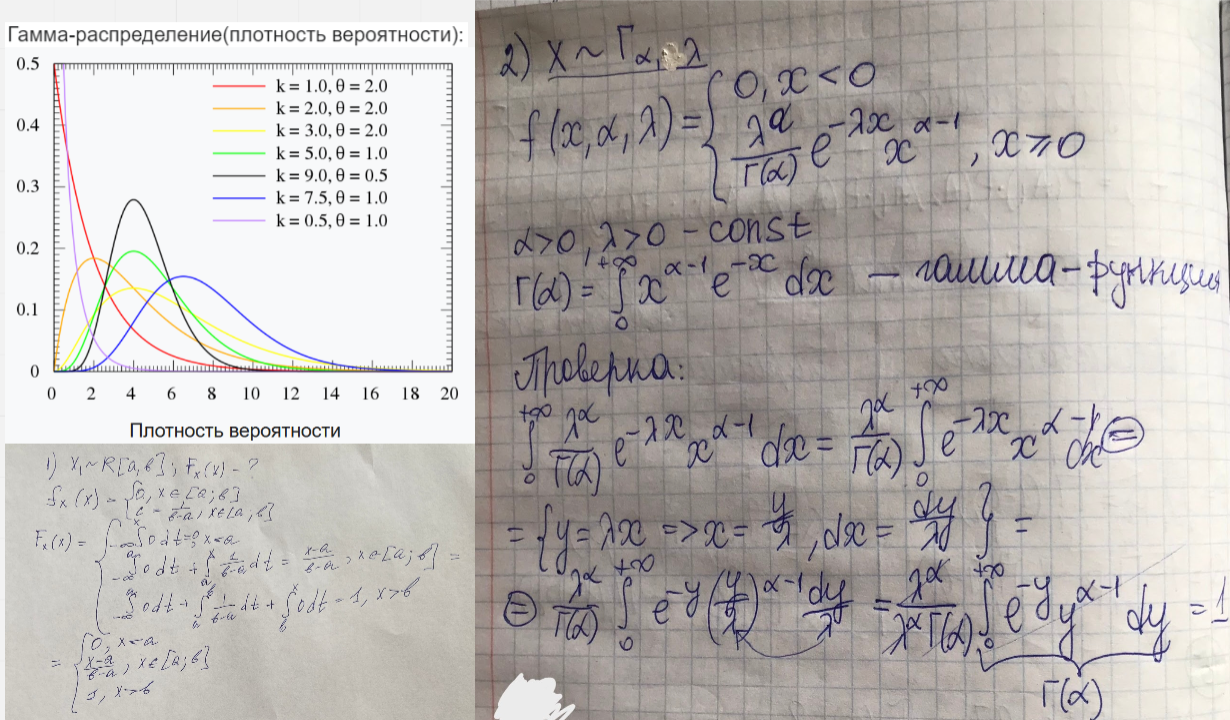 Гамма-распределение(плотность вероятности):
0.5
0.4
0.3
0.2
0.1
0
k = 1.0, θ = 2.0
k = 2.0, θ = 2.0
k = 3.0, θ = 2.0
k = 5.0, θ = 1.0
k = 9.0, θ = 0.5
k = 7.5, θ = 1.0
k = 0.5, θ = 1.0
0 2 4 6 8 10 12 14 16 18 20
Плотность вероятности
1) X₁ ~ R[a, b]; Fₓ(x) - ?
fₓ(x) = { 0, x ∈ [a; b]
c = 1/(b-a), x ∈ [a, b]
Fₓ(x) = { ∫₋∞ˣ 0 dt = 0, x < a
∫₋∞ᵃ 0 dt + ∫ₐˣ 1/(b-a) dt = (x-a)/(b-a), x ∈ [a; b] =
∫₋∞ᵃ 0 dt + ∫ₐᵇ 1/(b-a) dt + ∫_bˣ 0 dt = 1, x > b
= { 0, x < a
(x-a)/(b-a), x ∈ [a; b]
1, x > b
2) X ~ Γ α, λ
f(x, α, λ) = { 0, x < 0
λ^α/Γ(α) e^(-λx) x^(α-1), x ⩾ 0
α > 0, λ > 0 - const
Γ(α) = ∫₀^(+∞) x^(α-1) e^(-x) dx — гамма-функция
Проверка:
∫₀^(+∞) λ^α/Γ(α) e^(-λx) x^(α-1) dx = λ^α/Γ(α) ∫₀^(+∞) e^(-λx) x^(α-1) dx ⊜
= { y = λx => x = y/λ, dx = dy/λ } =
⊜ λ^α/Γ(α) ∫₀^(+∞) e^(-y) (y/λ)^(α-1) dy/λ = λ^α/(λ^α Γ(α)) ∫₀^(+∞) e^(-y) y^(α-1) dy = 1
Γ(α)